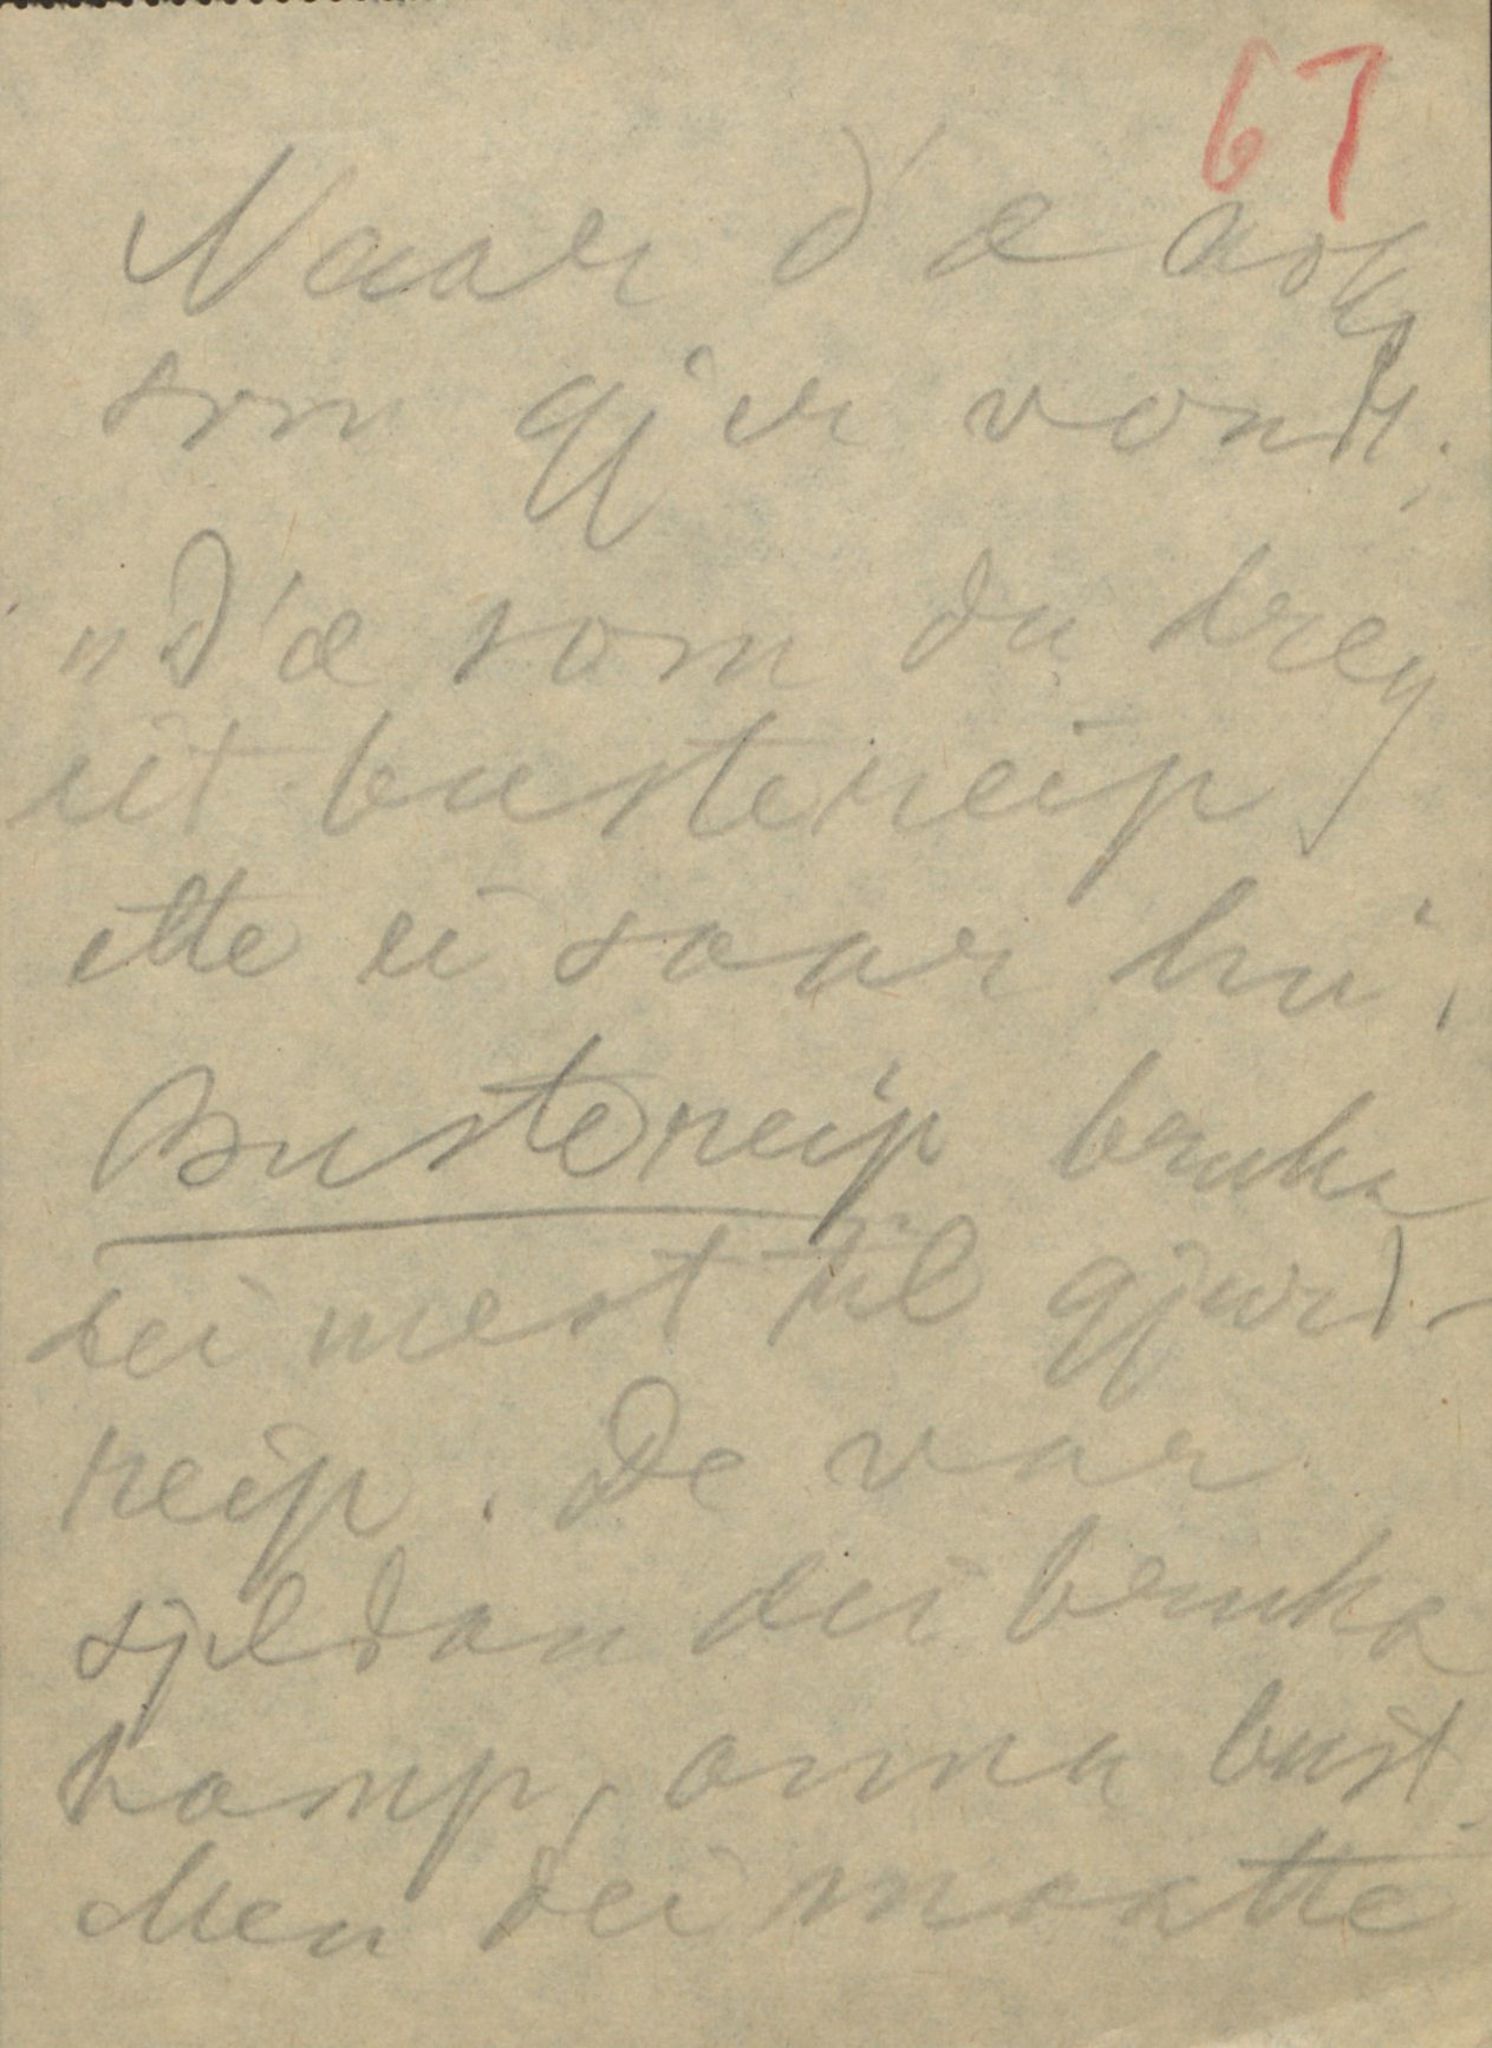 67
Naar d'æ noko
som gjer vondt.
"D'æ som du dreg
eit bustereip
ette ei saar hu'.
Bustereip bruka
dei mest til gjord-
reip. De var
sjeldan dei bruka
hamp, onna bust.
Men dei maatte